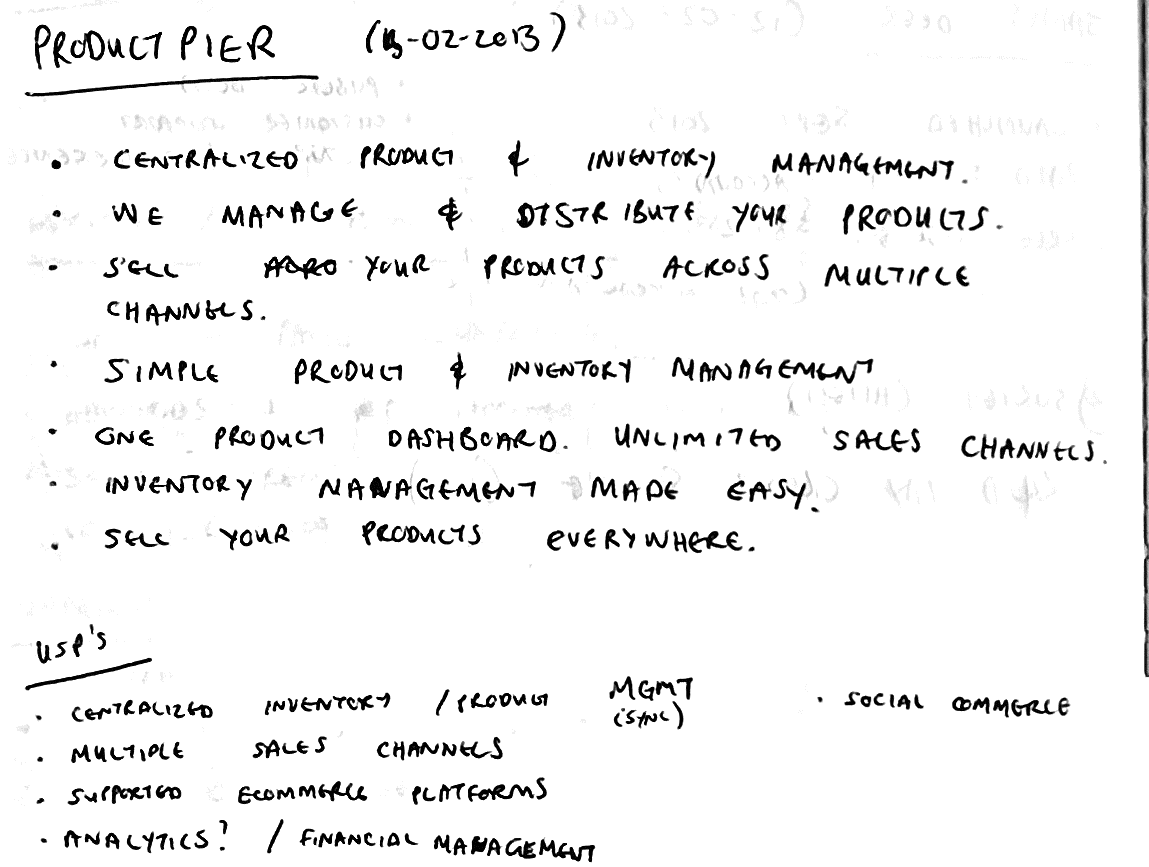 PRODUCT PIER (13-02-2013)
• CENTRALIZED PRODUCT & INVENTORY MANAGEMENT.
• WE MANAGE & DISTRIBUTE YOUR PRODUCTS.
• SELL YOUR PRODUCTS ACROSS MULTIPLE
CHANNELS.
• SIMPLE PRODUCT & INVENTORY MANAGEMENT
• ONE PRODUCT DASHBOARD. UNLIMITED SALES CHANNELS.
• INVENTORY MANAGEMENT MADE EASY.
• SELL YOUR PRODUCTS EVERYWHERE.
USP's
• CENTRALIZED INVENTORY / PRODUCT MGMT
(SYNC)
• SOCIAL COMMERCE
• MULTIPLE SALES CHANNELS
• SUPPORTED ECOMMERCE PLATFORMS
• ANALYTICS? / FINANCIAL MANAGEMENT